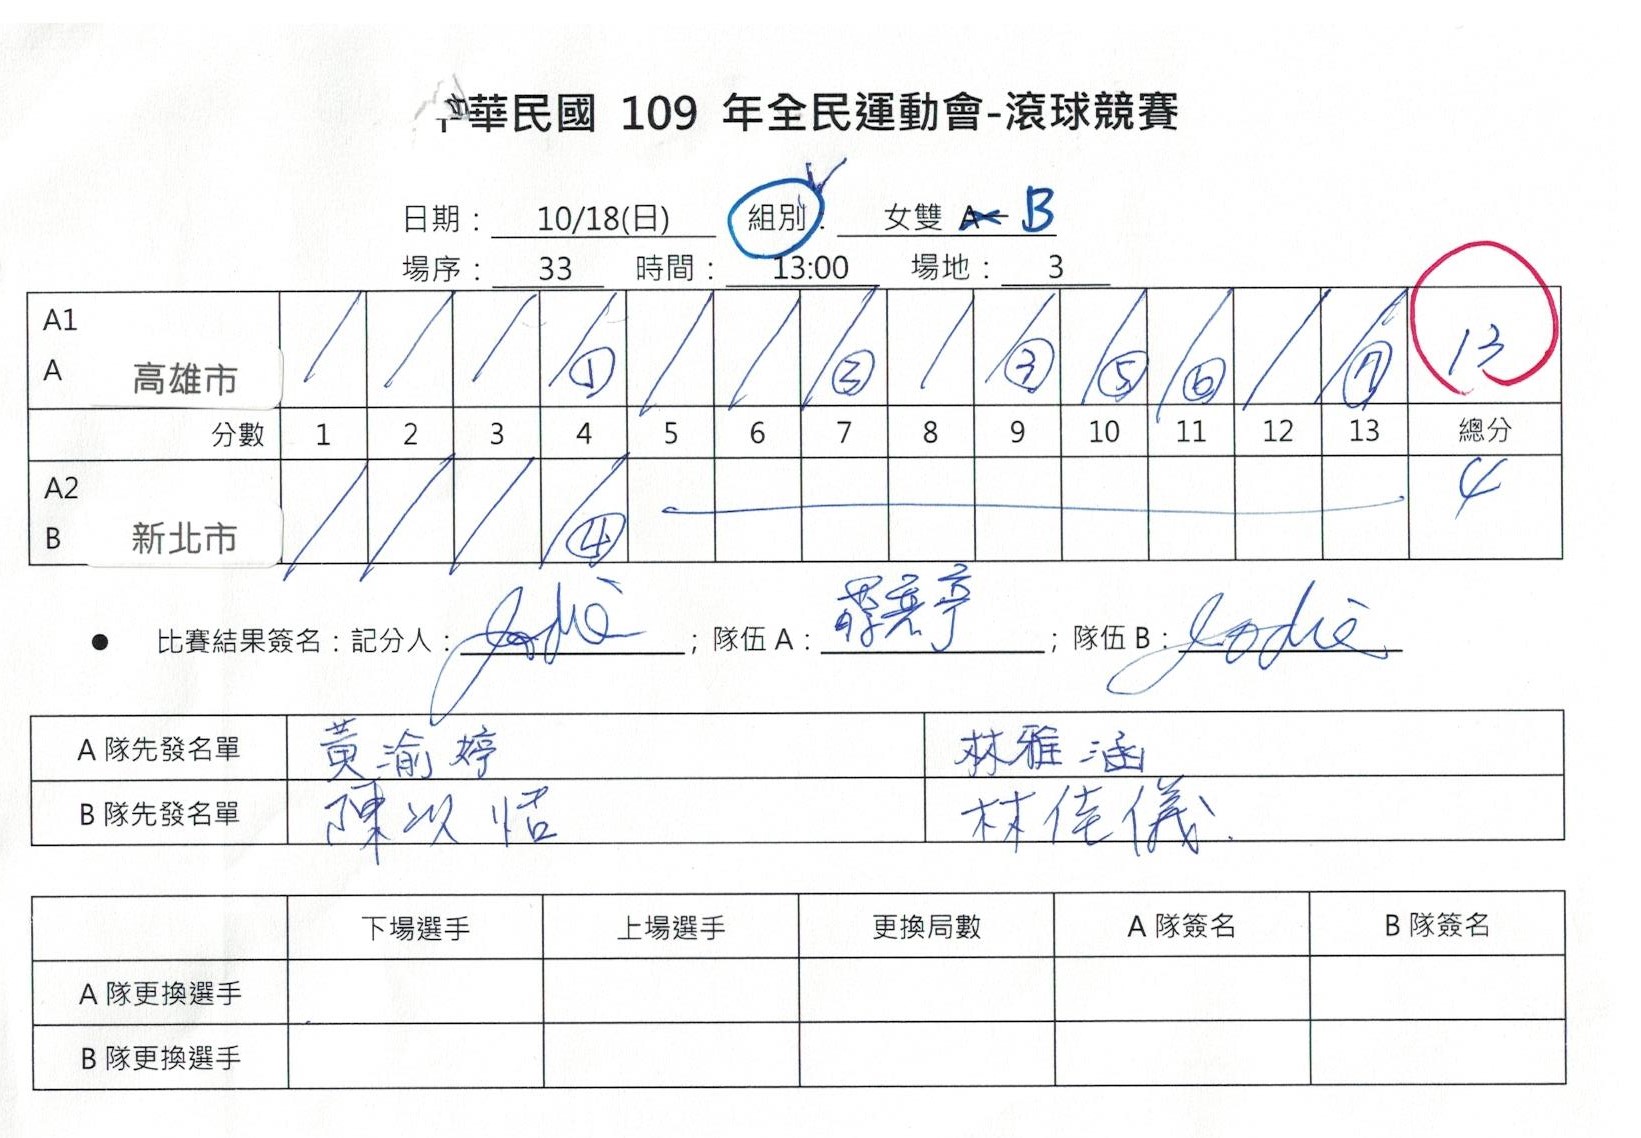 中華民國 109 年全民運動會-滾球競賽
日期： 10/18(日) 組別： 女雙 A B
場序： 33 時間： 13:00 場地： 3
A1
A 高雄市 ① ② ③ ⑤ ⑥ ⑦ 13
分數 1 2 3 4 5 6 7 8 9 10 11 12 13 總分
A2
B 新北市 ④ 4
● 比賽結果簽名：記分人： Jodie ；隊伍 A： ；隊伍 B： Jodie
A 隊先發名單 黃渝婷 林雅涵
B 隊先發名單 陳以恬 林佳儀
下場選手 上場選手 更換局數 A 隊簽名 B 隊簽名
A 隊更換選手
B 隊更換選手